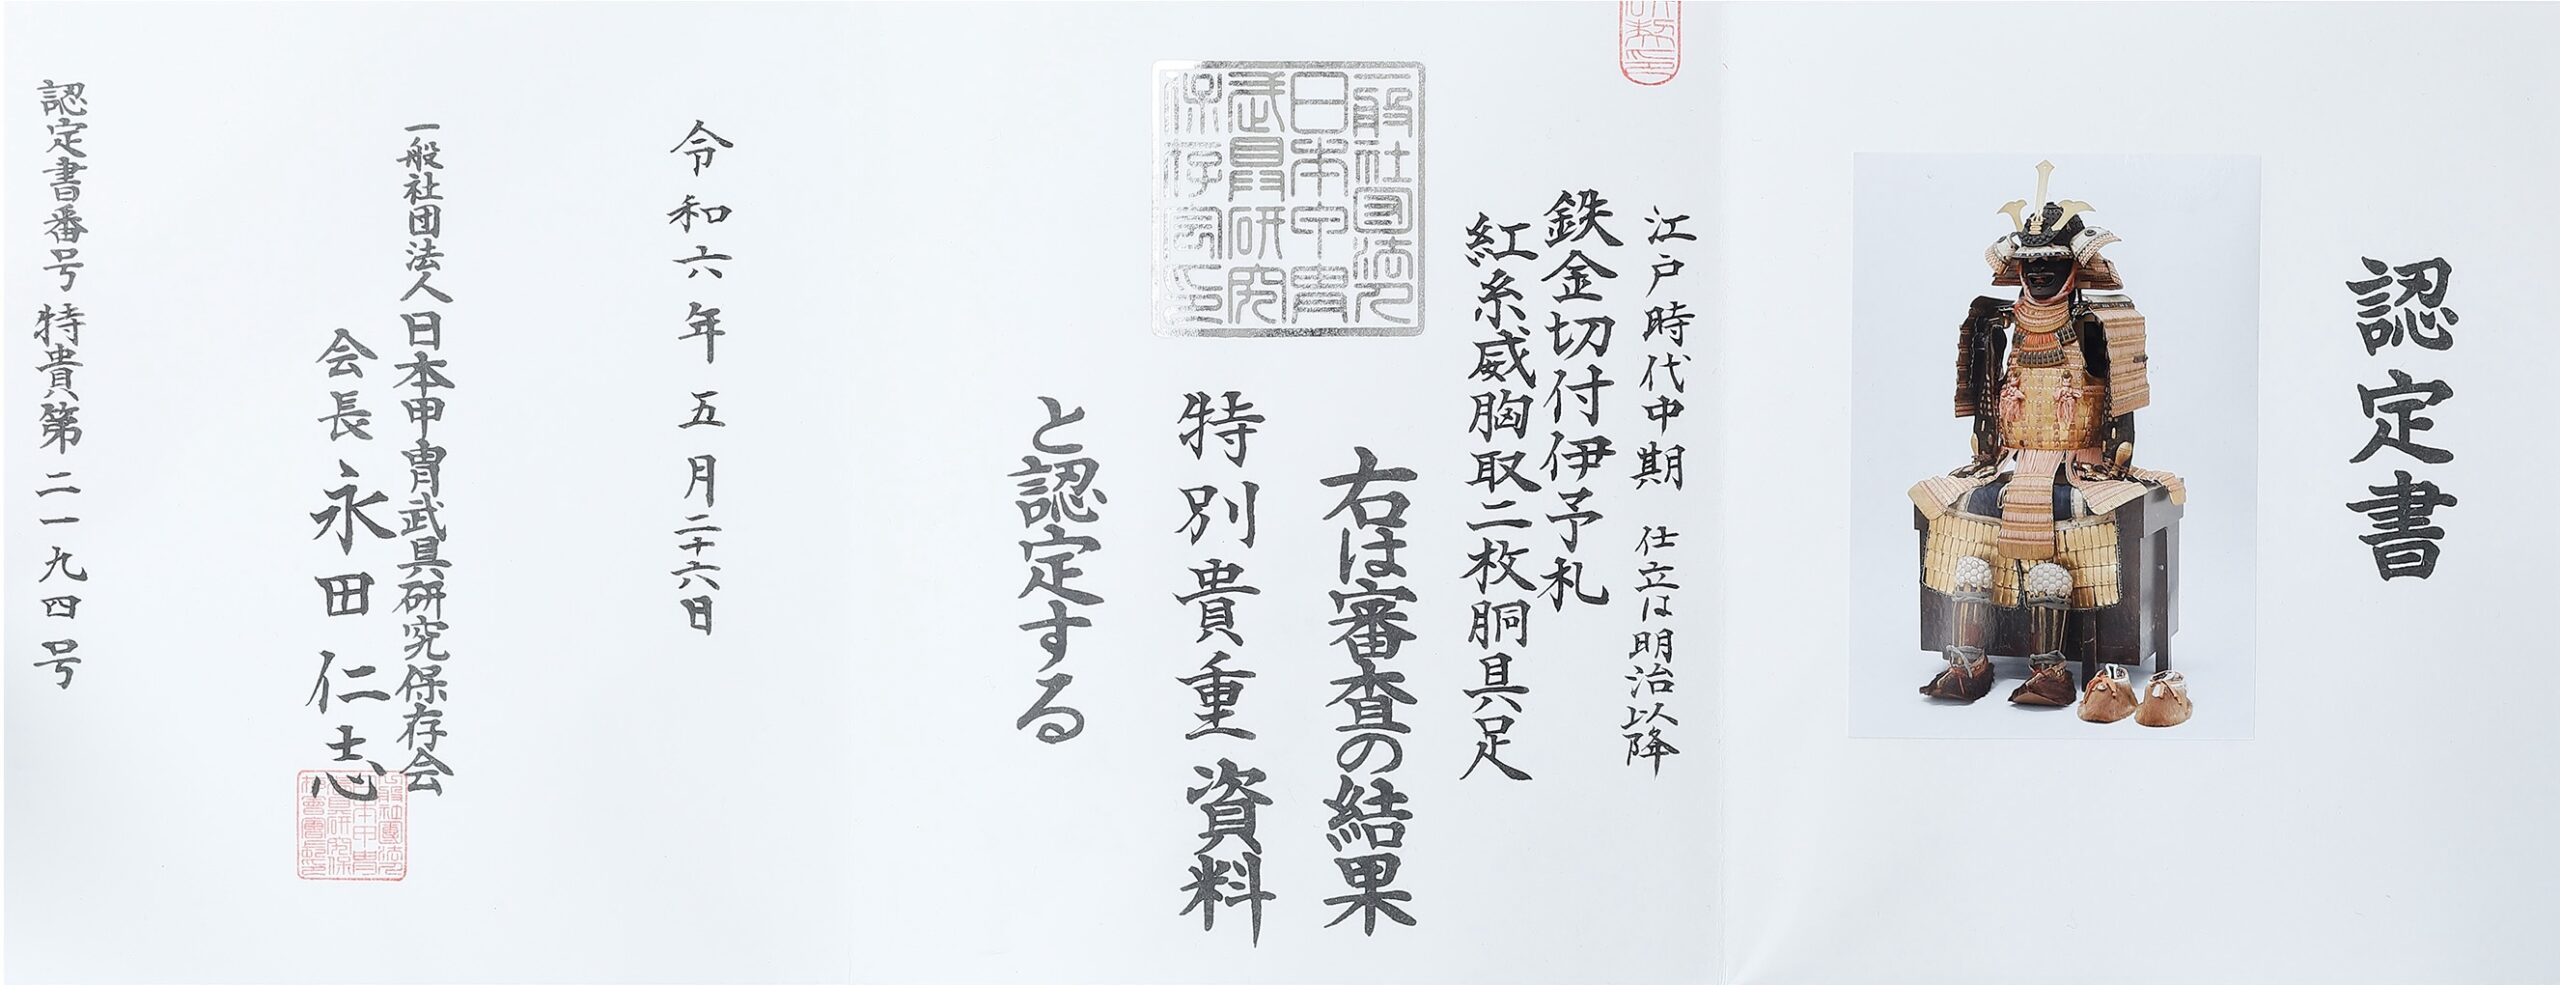 認定書
江戸時代中期 仕立は明治以降
鉄金切付伊予札
紅糸威胸取二枚胴具足
右は審査の結果
特別貴重資料
と認定する
令和六年五月二十六日
一般社団法人日本甲冑武具研究保存会
会長 永田仁志
認定書番号 特貴第二一九四号
一般社団法人
日本甲冑
武具研究
保存会印